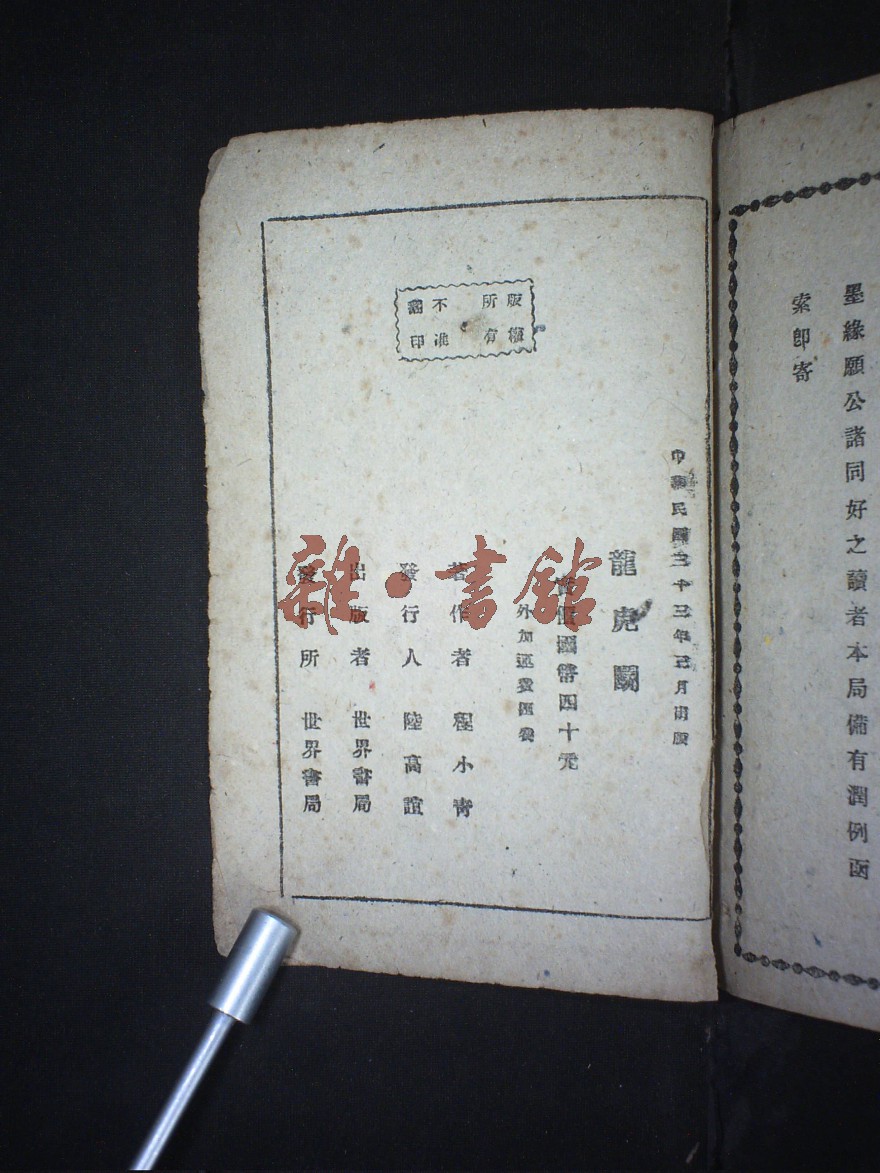 墨緣願公諸同好之讀者本局備有潤例函
索即寄
版權所有
不准翻印
中華民國三十三年三月出版
龍虎鬭
實價國幣四十元
外加運費匯費
著作者 程小青
發行人 陸高誼
出版者 世界書局
發行所 世界書局
雜·書館